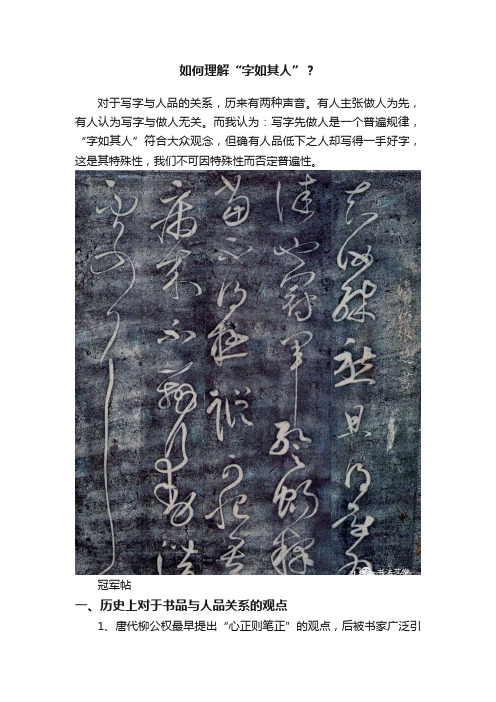 如何理解“字如其人”？
对于写字与人品的关系，历来有两种声音。有人主张做人为先，
有人认为写字与做人无关。而我认为：写字先做人是一个普遍规律，
“字如其人”符合大众观念，但确有人品低下之人却写得一手好字，
这是其特殊性，我们不可因特殊性而否定普遍性。
知汝殊愁且得还为
佳也冠军暂畅释
当不得极踪可恨吾
病来不辨行动潜
冠军帖
一、历史上对于书品与人品关系的观点
1、唐代柳公权最早提出“心正则笔正”的观点，后被书家广泛引